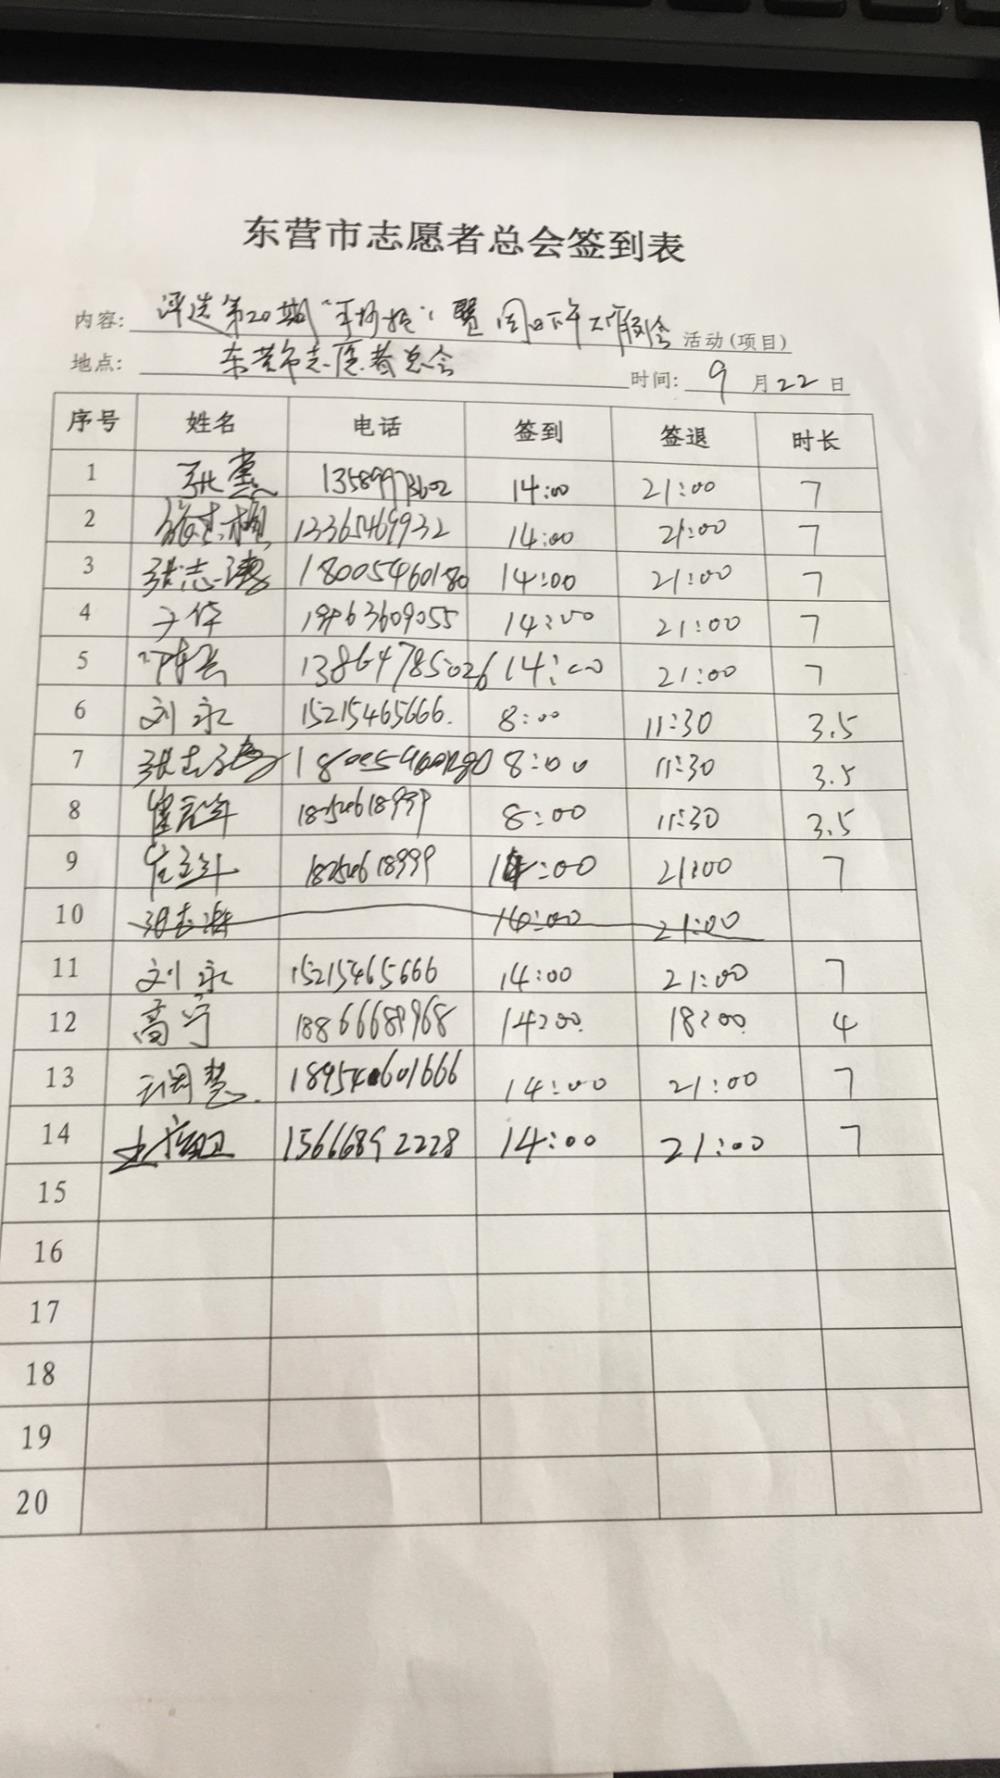 东营市志愿者总会签到表
内容: 评选第20期 暨周日下午工作例会 活动(项目)
地点: 东营市志愿者总会 时间: 9月22日
序号 姓名 电话 签到 签退 时长
1 13589973602 14:00 21:00 7
2 13365469932 14:00 21:00 7
3 张志海 18005460180 14:00 21:00 7
4 14:00 21:00 7
5 13864785026 14:00 21:00 7
6 刘永 15215465666. 8:00 11:30 3.5
7 张志海 8:00 11:30 3.5
8 8:00 11:30 3.5
9 14:00 21:00 7
10 张志海 14:00 21:00
11 刘永 15215465666 14:00 21:00 7
12 高宁 18866689968 14:00 18:00 4
13 14:00 21:00 7
14 15666892228 14:00 21:00 7
15
16
17
18
19
20